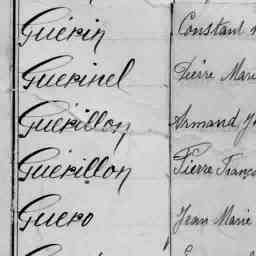 Guérin Constant
Guerinel Pierre Mari
Guérillon Armand J
Guérillon Pierre Franço
Guero Jean Marie